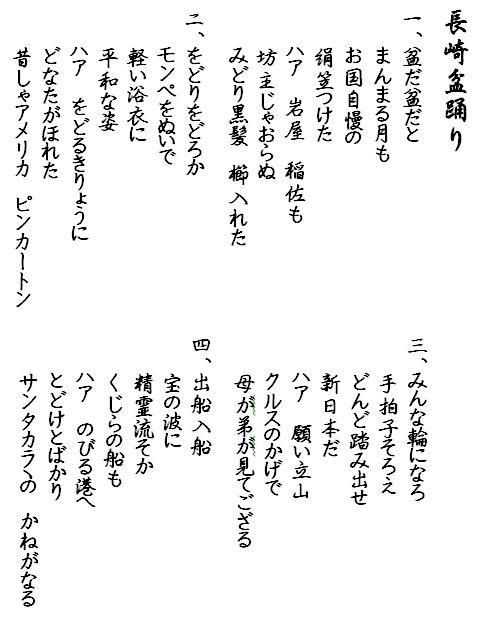 長崎盆踊り
一、盆だ盆だと
まんまる月も
お国自慢の
絹笠つけた
ハア　岩屋　稲佐も
坊主じゃおらぬ
みどり黒髪　櫛入れた
二、をどりをどろか
モンペをぬいで
軽い浴衣に
平和な姿
ハア　をどるきりょうに
どなたがほれた
昔しゃアメリカ　ピンカートン
三、みんな輪になろ
手拍子そろえ
どんど踏み出せ
新日本だ
ハア　願い立山
クルスのかげで
母が弟が見てござる
四、出船入船
宝の波に
精霊流そか
くじらの船も
ハア　のびる港へ
とどけとばかり
サンタカラゝの　かねがなる